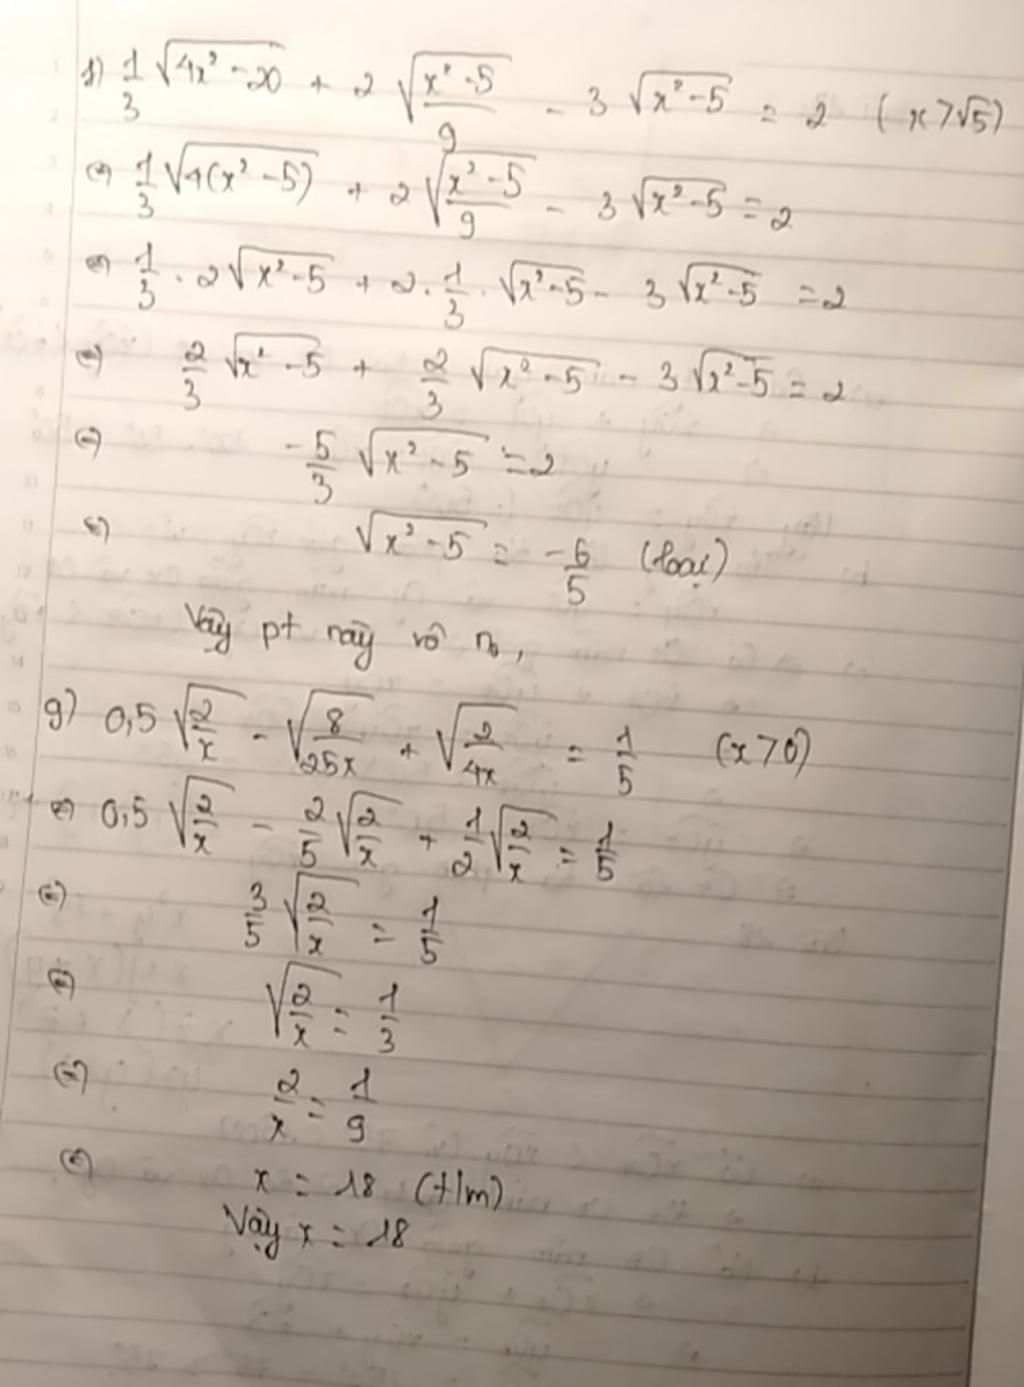 f) 1/3 √(4x² - 20) + 2 √((x² - 5)/9) - 3 √(x² - 5) = 2 (x > √5)
⇔ 1/3 √(4(x² - 5)) + 2 √((x² - 5)/9) - 3 √(x² - 5) = 2
⇔ 1/3 . 2 √(x² - 5) + 2 . 1/3 . √(x² - 5) - 3 √(x² - 5) = 2
⇔ 2/3 √(x² - 5) + 2/3 √(x² - 5) - 3 √(x² - 5) = 2
⇔ -5/3 √(x² - 5) = 2
⇔ √(x² - 5) = -6/5 (loại)
Vậy pt này vô no,
g) 0,5 √(2/x) - √(8/25x) + √(2/4x) = 1/5 (x > 0)
⇔ 0,5 √(2/x) - 2/5 √(2/x) + 1/2 √(2/x) = 1/5
⇔ 3/5 √(2/x) = 1/5
⇔ √(2/x) = 1/3
⇔ 2/x = 1/9
⇔ x = 18 (t/m)
Vậy x = 18